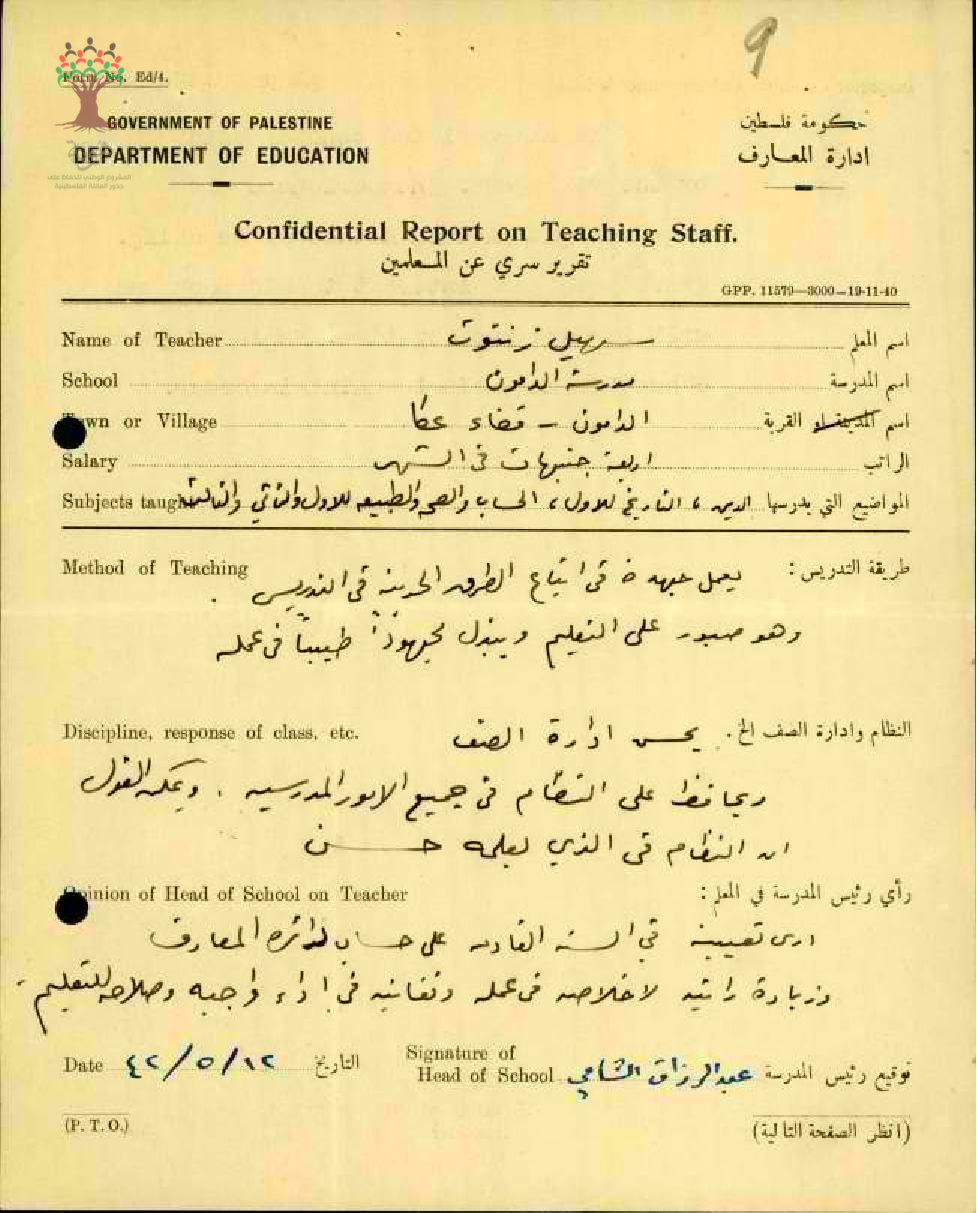 9
Form No. Ed/4.
GOVERNMENT OF PALESTINE
حكومة فلسطين
DEPARTMENT OF EDUCATION
ادارة المعارف
المشروع الوطني للحفاظ على
جذور العائلة الفلسطينية
Confidential Report on Teaching Staff.
تقرير سري عن المعلمين
GPP. 11579—3000—19-11-40
Name of Teacher سهيل زنتوت اسم المعلم
School مدرسة الدامون اسم المدرسة
Town or Village الدامون – قضاء عكا اسم المدينة او القرية
Salary اربعة جنيهات في الشهر الراتب
Subjects taught المواضيع التي يدرسها الدين، التاريخ للاول، الحساب والصحه والطبيعه للاول والثاني والثالث
Method of Teaching طريقة التدريس: يعمل جهده في اتباع الطرق الحديثه في التدريس.
وهو صبور على التعليم ويبذل مجهوداً طيباً في عمله
Discipline, response of class, etc. النظام وادارة الصف الخ. يحسن ادارة الصف
ويحافظ على النظام في جميع الامور المدرسيه. ويمكن القول
ان النظام في الذي يعلمه حسن
Opinion of Head of School on Teacher رأي رئيس المدرسة في المعلم:
ارى تعيينه في السنه القادمه على حساب لدائرة المعارف
وزيادة راتبه لاخلاصه في عمله وتفانيه في اداء واجبه وصلاحه للتعليم.
Date ١٢/٥/٤٢ التاريخ
Signature of
Head of School عبدالرزاق الشامي توقيع رئيس المدرسة
(P. T. O.)
(انظر الصفحة التالية)